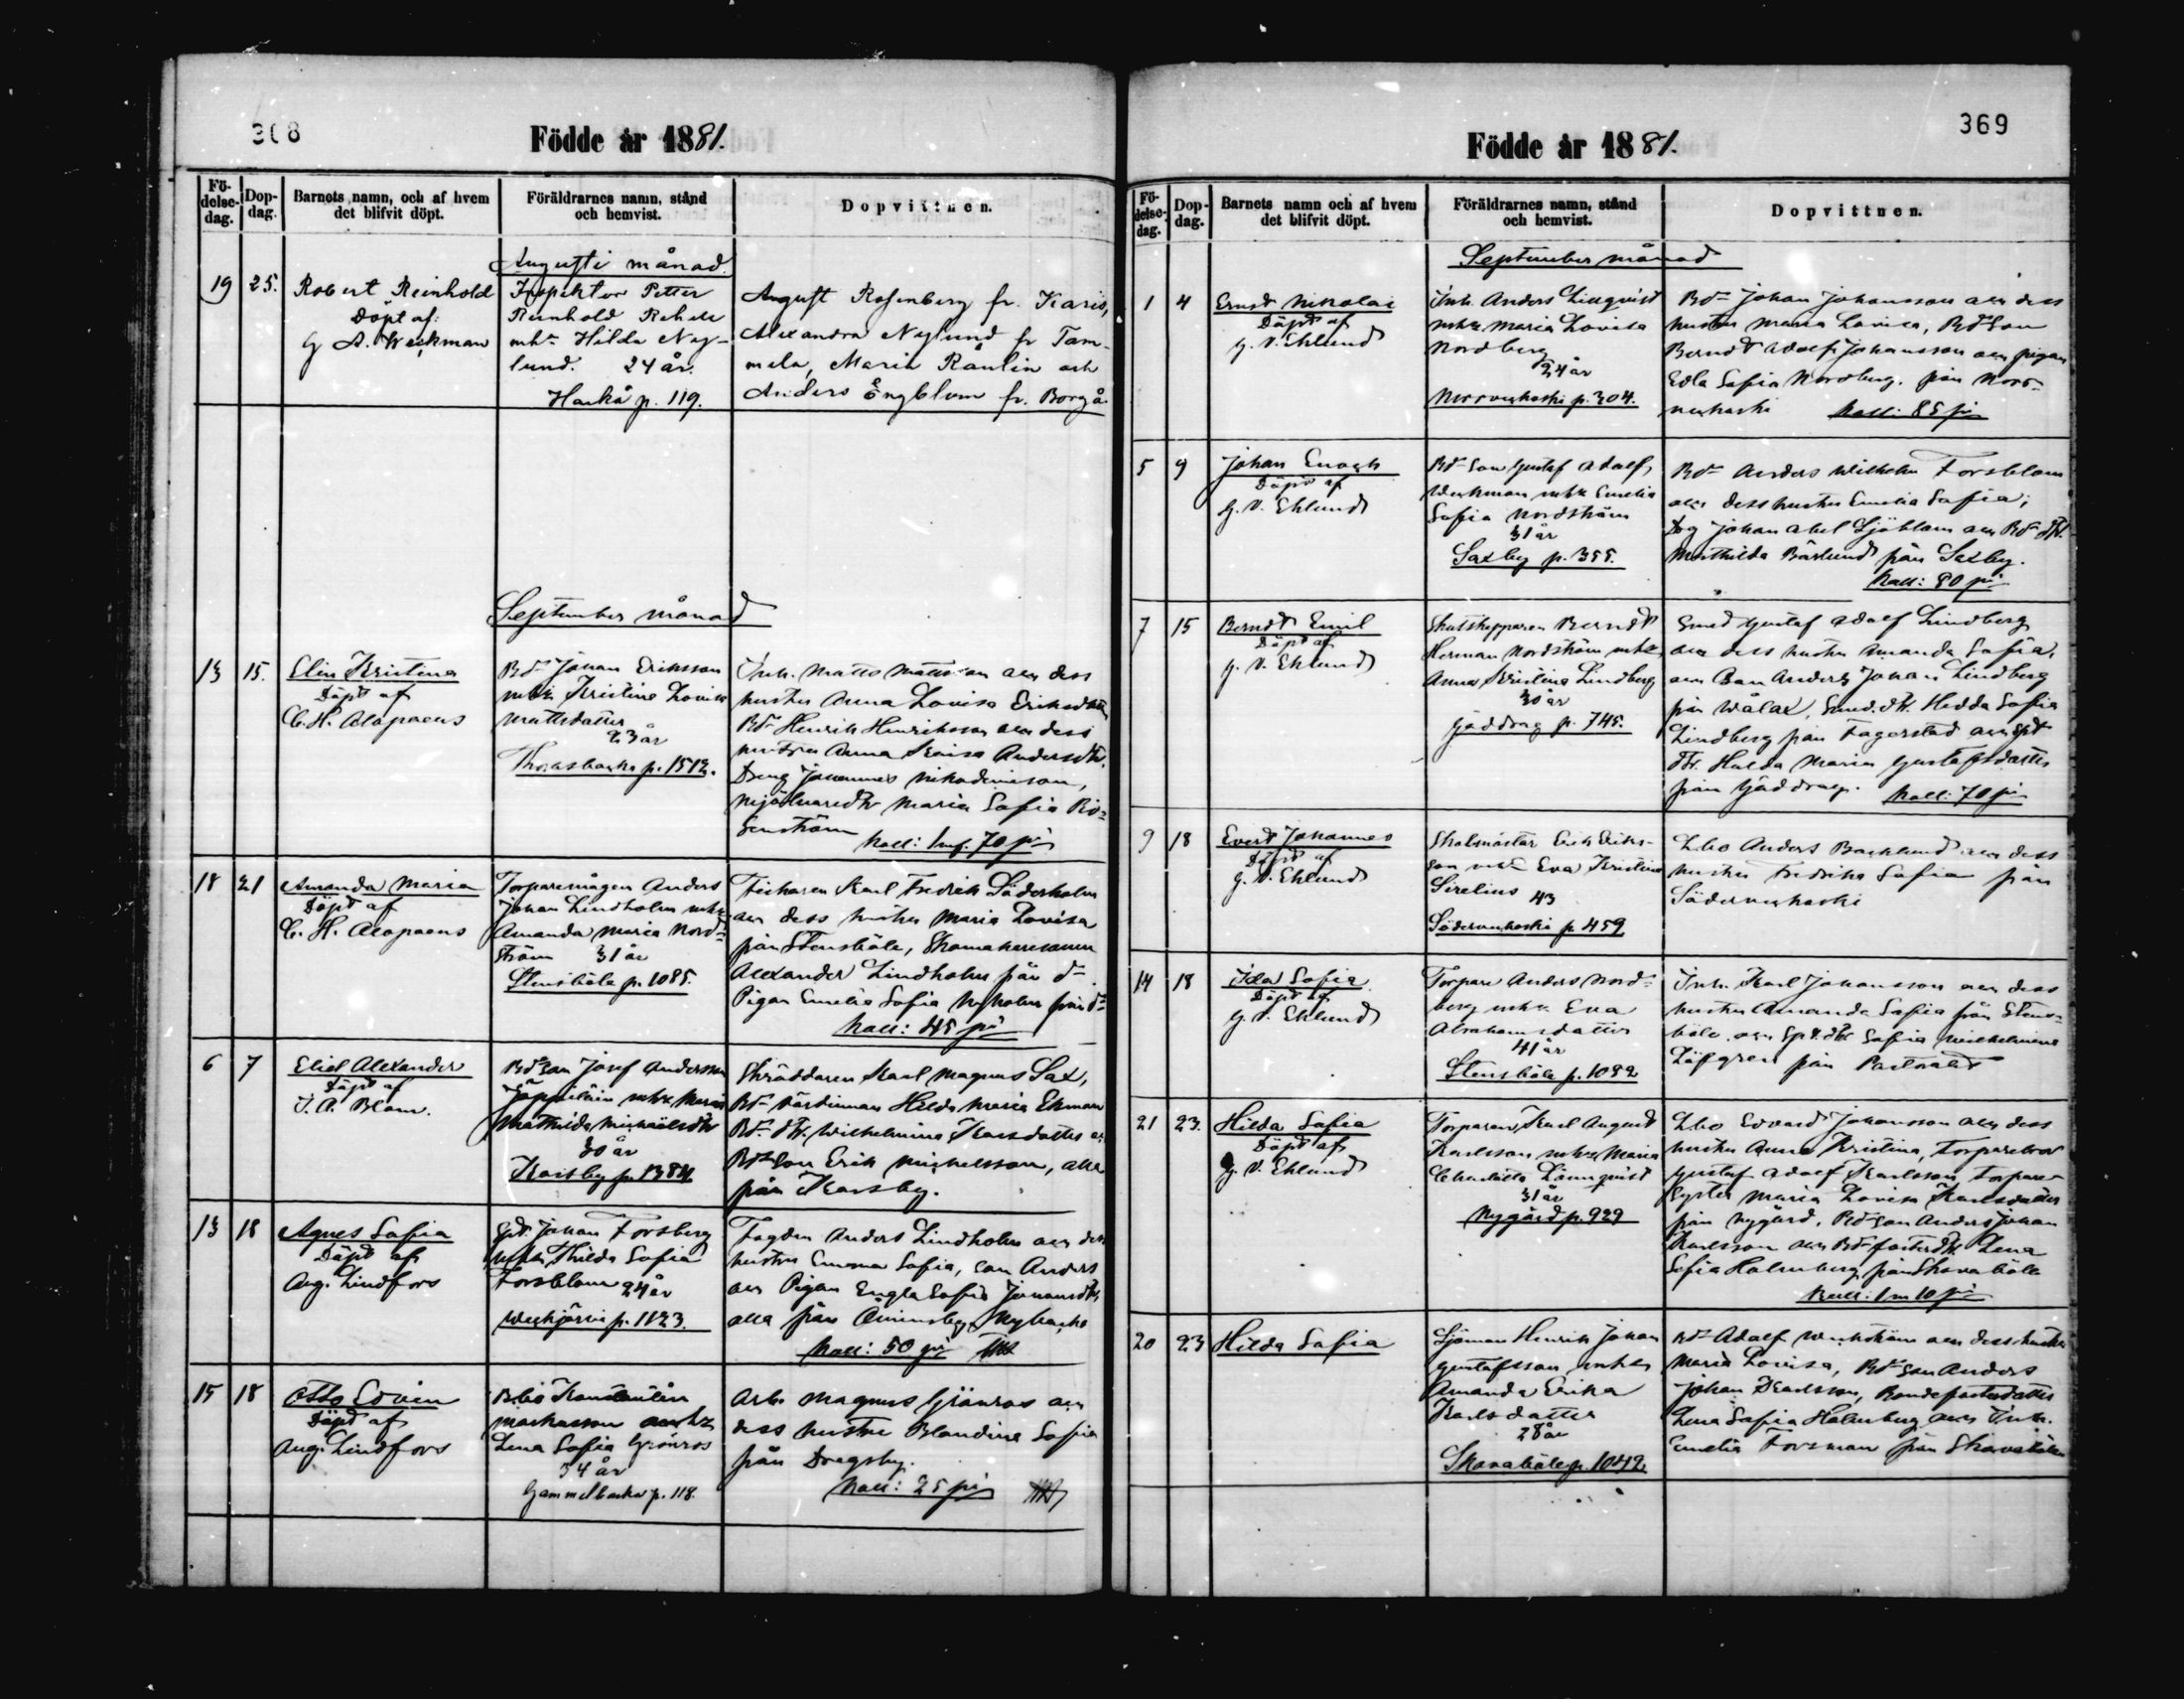 368
Födde år 1881.
Fö-delse-dag.
Dop-dag.
Barnets namn, och af hvem det blifvit döpt.
Föräldrarnes namn, stånd och hemvist.
Dopvittnen.
Augusti månad.
19 25. Robert Reinhold
Döpt af:
G A. Weckman
Inspektor Petter
Reinhold
mhu Hilda Ny-
lund. 24 år.
p. 119.
August Rosenberg fr. Karis,
Alexandra Nylund fr Tam-
mela, Maria och
Anders Engblom fr. Borgå
September månad
13 15. Elin Kristina
Döpt af
C. H. Alopaeus
Bd Johan Eriksson
mhu Kristina Lovisa
Mattsdotter
23 år
p. 1512.
Inh. Matts Mattsson och dess
hustru Anna Lovisa
Bd Henrik Henriksson och dess
hustru Anna Andersdtr.
Dreng Johannes
Maria Sofia Ro-
senström Koll: 1 m. 70 pi
18 21 Amanda Maria
Döpt af
C. H. Alopaeus
Torparemågen Anders
Johan Lindholm mhu
Amanda Maria Nord-
ström 31 år
Stensböle p. 1085.
Fiskaren Karl Fredrik Söderholm
och dess hustru Maria Lovisa
från Stensböle,
Alexander Lindholm från d
Pigan Emelie Sofia från d
Koll: 45 pi
6 7 Eliel Alexander
Döpt af
J. A. Blom.
Bd son Josef Andersson
mhu Maria
Mathilda Michaelsdtr
30 år
Karsby p. 1384
Skräddaren Karl Magnus Sax,
Bd Hilda Maria Ekman
Bd dtr. Wilhelmina Karsdatter
Bd son Erik Michelsson, alla
från Karsby.
13 18 Agnes Sofia
Döpt af
Aug. Lindfors
Johan Forsberg
mhu Hilda Sofia
Forsblom 24 år
Weckjärvi p. 1123.
Fogden Anders Lindholm och dess
hustru Emma Sofia, son Anders
och Pigan Engla Sofia Johansdtr,
alla från
Koll: 50 pi
15 18 Otto Edvin
Döpt af
Aug. Lindfors
Konstantin
Markusson mhu
Lena Sofia Grönros
34 år
Gammelbacka p. 118.
Arb. Magnus Grönroos och
dess hustru Blandina Sofia
från Dregsby.
Koll: 25 pi
369
Födde år 1881.
Fö-delse-dag.
Dop-dag.
Barnets namn och af hvem det blifvit döpt.
Föräldrarnes namn, stånd och hemvist.
Dopvittnen.
September månad
1 4 Ernst Nikolai
Döpt af
G. V. Eklund
Inh. Anders Lindqvist
mhu Maria Lovisa
Nordberg
24 år
Norrveckoski p. 304.
Bd Johan Johansson och dess
hustru Maria Lovisa, Bd son
Berndt Adolf Johansson och pigan
Edla Sofia Nordberg, från Norr-
veckoski Koll: 85 pi
5 9 Johan Enoch
Döpt af
G. V. Eklund
Bd son Gustaf Adolf
Weckman mhu Emelia
Sofia Nordström
31 år
Saxby p. 355.
Bd Anders Wilhelm Forsblom
och dess hustru Emelia Sofia;
Dg Johan Abel Sjöblom och Bd dtr.
Mathilda Bärlund från Saxby.
Koll: 80 pi
7 15 Berndt Emil
Döpt af
G. V. Eklund
Skutskepparen Berndt
Herman Nordström mhu
Anna Kristina Lindberg
30 år
Gäddrag p. 745.
Smed Gustaf Adolf Lindberg
och dess hustru Amanda Sofia,
och Anders Johan Lindberg
från Wålax, Smed. dtr. Hedda Sofia
Lindberg från Fagersta och
dtr. Hulda Maria Gustafsdatter
från Gäddrag. Koll: 70 pi
9 18 Evert Johannes
Döpt af
G. V. Eklund
Skolmästar Erik Eriks-
son mhu Eva Kristina
Sirelius 43
Söderveckoski p 459
Lbo Anders Backlund och dess
hustru Fredrika Sofia från
Söderveckoski
14 18 Ida Sofia
Döpt af
G. V. Eklund
Torpare Anders Nord-
berg mhu Eva
Abrahamsdatter
41 år
Stensböle p. 1092
Inh. Karl Johansson och dess
hustru Amanda Sofia från Stens-
böle, och dtr Sofia Wilhelmina
Löfgren från
21 23. Hilda Sofia
Döpt af
G. V. Eklund
Torparen Karl August
Karlsson mhu Maria
Charlotta Lönnqvist
31 år
Nygård p. 929
Lbo Edvard Johansson och dess
hustru Anna Kristina, Torparebror
Gustaf Adolf Karlsson, Torpare-
syster Maria Lovisa Karlsdatter
från Nygård, Bd son Anders Johan
Karlsson och Bd fosterdtr. Lena
Sofia Holmberg från Skavaböle
Koll: 1 m 10 pi
20 23 Hilda Sofia
Sjöman Henrik Johan
Gustafsson mhu
Amanda Erika
Karlsdatter
28 år
Skavaböle p. 1042
Bd Adolf Wickström och dess hustru
Maria Lovisa, Bd son Anders
Johan Karlsson, Bondefosterdatter
Lena Sofia Holmberg och Inh.
Emelia Forsman från Skavaböle